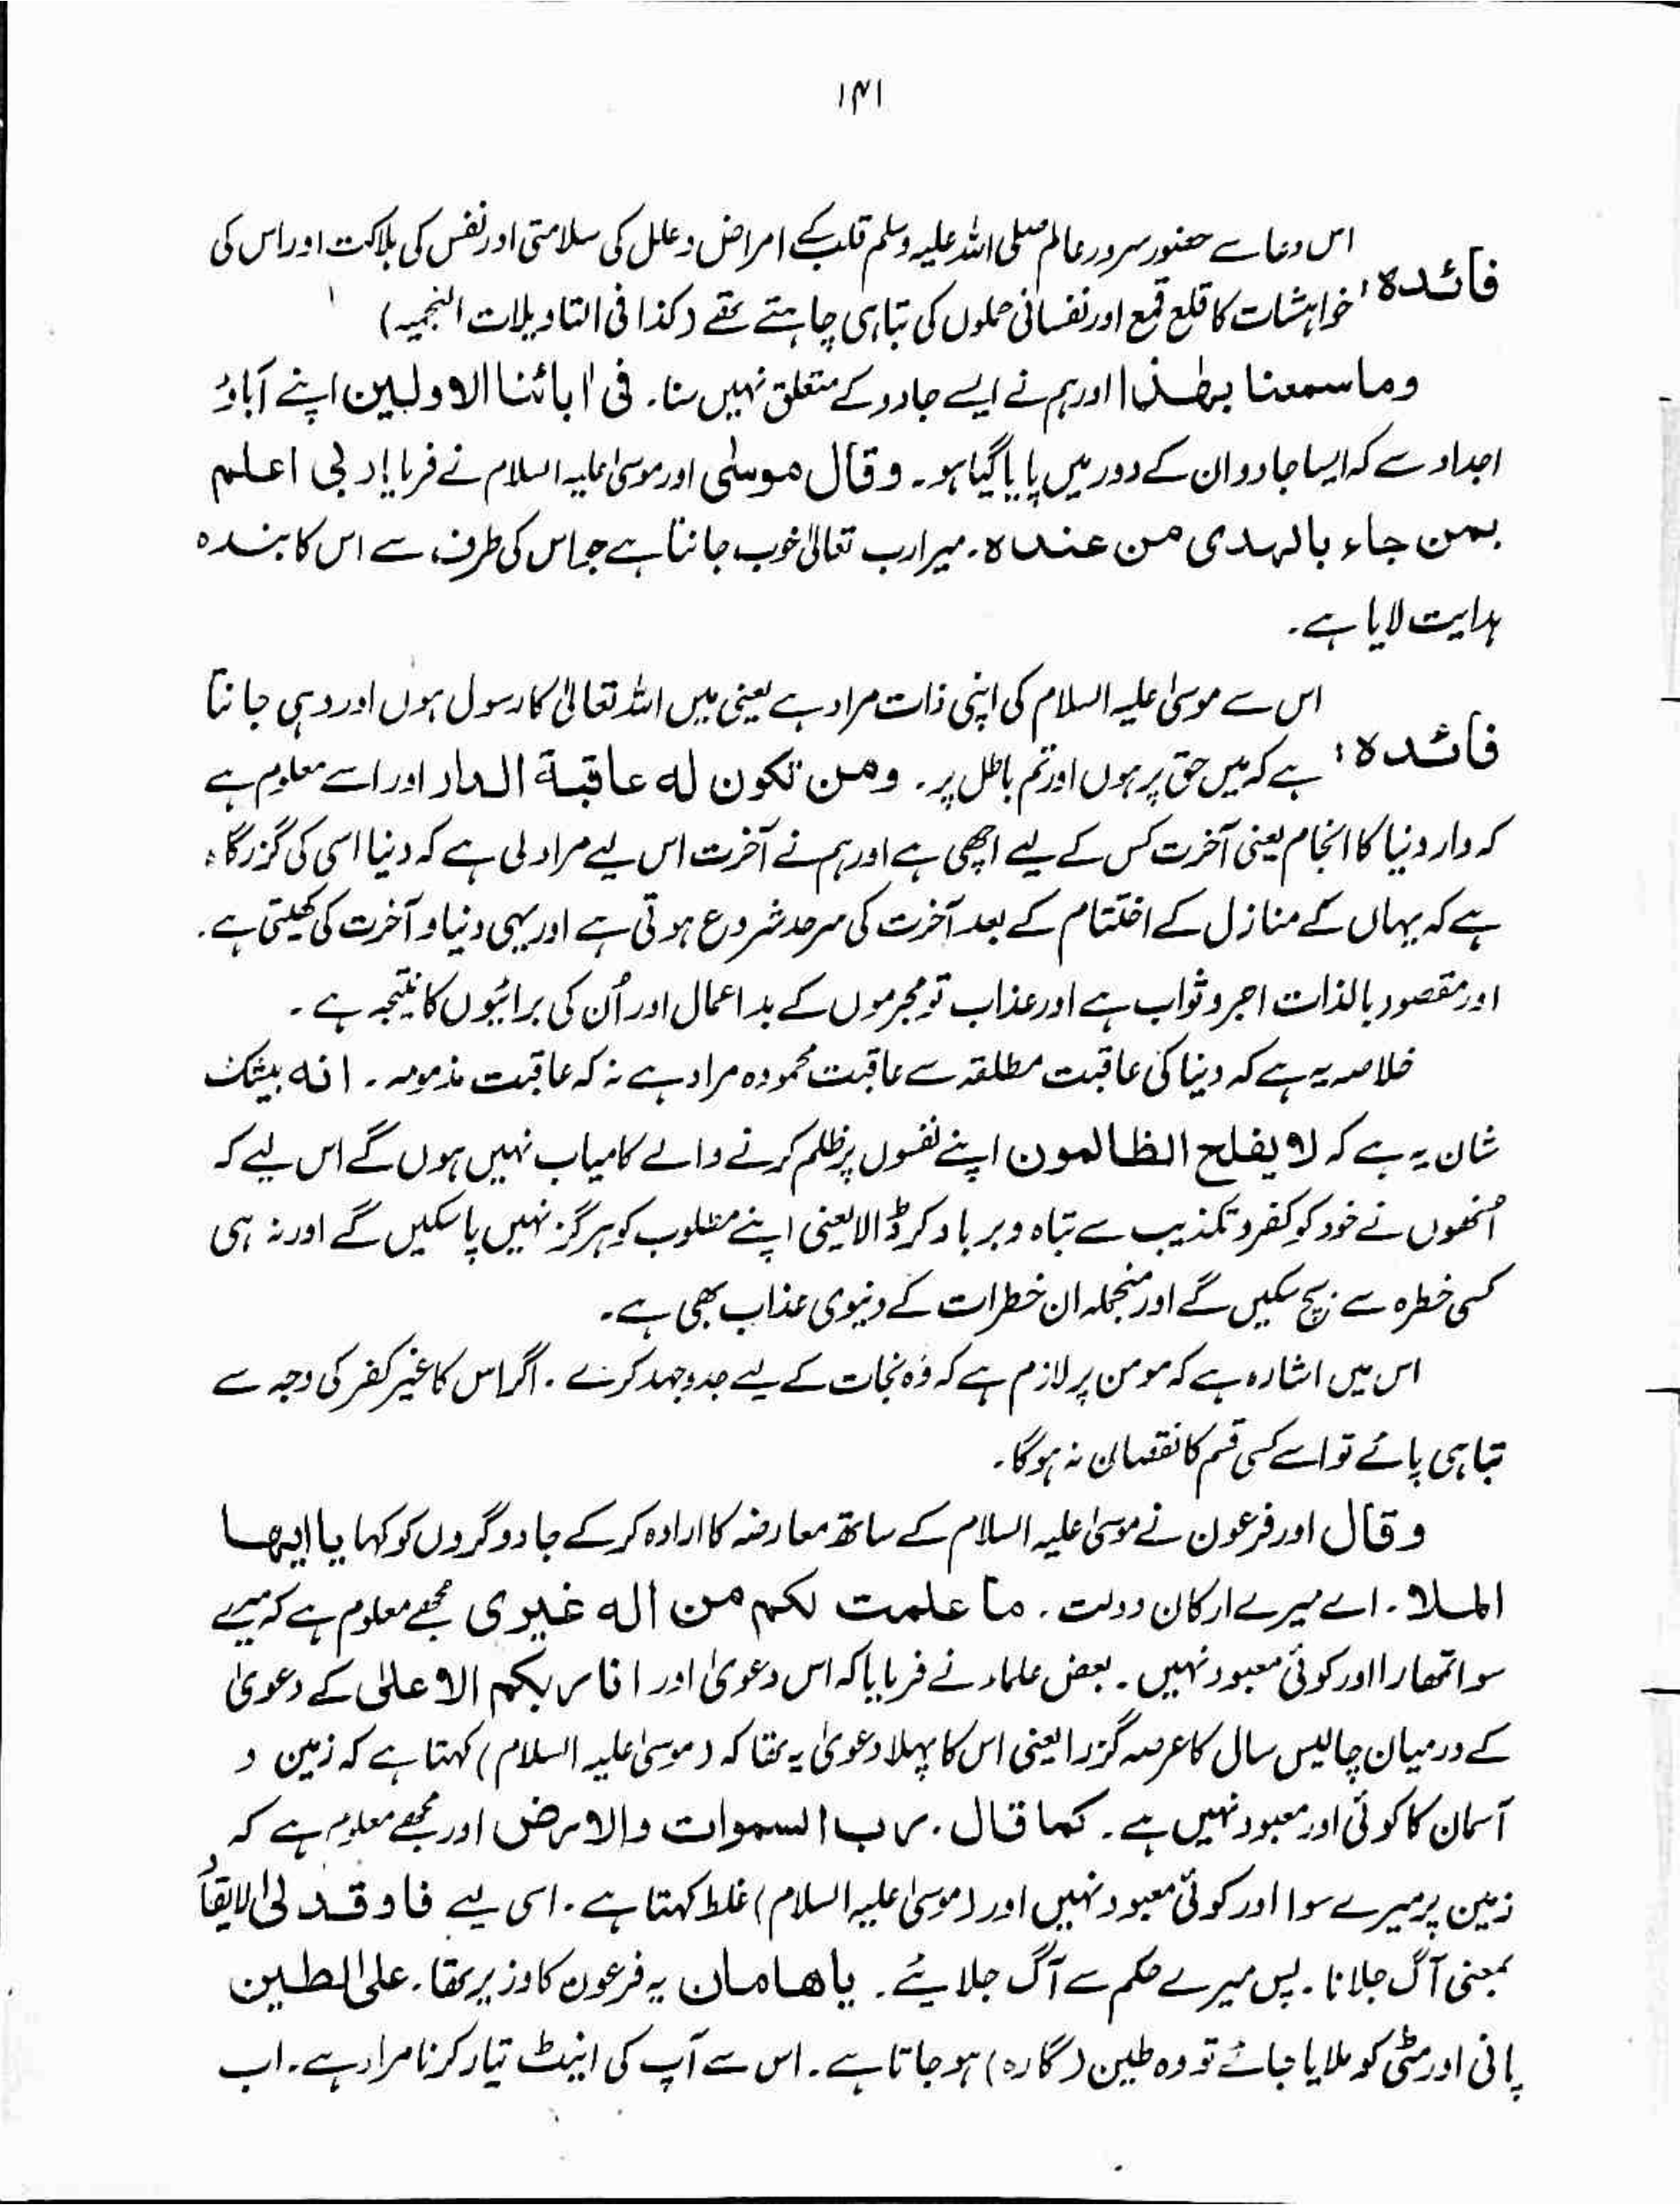 ۱۴۱
اس دعا سے حضور سرور عالم صلی اللہ علیہ وسلم قلب کے امراض و علل کی سلامتی اور نفس کی ہلاکت اور اس کی
فائدہ : خواہشات کا قلع قمع اور نفسانی حملوں کی تباہی چاہتے تھے (کذا فی التاویلات النجمیہ)
وما سمعنا بھٰذا اور ہم نے ایسے جادو کے متعلق نہیں سنا۔ فی اٰبائنا الاولین اپنے آباؤ
اجداد سے کہ ایسا جادو ان کے دور میں پایا گیا ہو۔ وقال موسٰی اور موسیٰ علیہ السلام نے فرمایا ربی اعلم
بمن جاء بالہدی من عندہ۔ میرا رب تعالیٰ خوب جانتا ہے جو اس کی طرف سے اس کا بندہ
ہدایت لایا ہے۔
اس سے موسیٰ علیہ السلام کی اپنی ذات مراد ہے یعنی میں اللہ تعالیٰ کا رسول ہوں اور وہی جانتا
فائدہ : ہے کہ میں حق پر ہوں اور تم باطل پر۔ ومن تکون لہ عاقبۃ الدار اور اسے معلوم ہے
کہ دار دنیا کا انجام یعنی آخرت کس کے لیے اچھی ہے اور ہم نے آخرت اس لیے مراد لی ہے کہ دنیا اسی کی گزرگاہ
ہے کہ یہاں کے منازل کے اختتام کے بعد آخرت کی سرحد شروع ہوتی ہے اور یہی دنیا و آخرت کی کھیتی ہے۔
اور مقصود بالذات اجر و ثواب ہے اور عذاب تو مجرموں کے بد اعمال اور اُن کی برائیوں کا نتیجہ ہے ۔
خلاصہ یہ ہے کہ دنیا کی عاقبت مطلقہ سے عاقبت محمودہ مراد ہے نہ کہ عاقبت مذمومہ ۔ انہ بیشک
شان یہ ہے کہ لا یفلح الظالمون اپنے نفسوں پر ظلم کرنے والے کامیاب نہیں ہوں گے اس لیے کہ
اُنھوں نے خود کو کفر و تکذیب سے تباہ و برباد کر ڈالا یعنی اپنے مطلوب کو ہرگز نہیں پا سکیں گے اور نہ ہی
کسی خطرہ سے بچ سکیں گے اور منجملہ ان خطرات کے دنیوی عذاب بھی ہے۔
اس میں اشارہ ہے کہ مومن پر لازم ہے کہ وُہ نجات کے لیے جدوجہد کرے ۔ اگر اس کا غیر کفر کی وجہ سے
تباہی پائے تو اسے کسی قسم کا نقصان نہ ہوگا۔
وقال اور فرعون نے موسیٰ علیہ السلام کے ساتھ معارضہ کا ارادہ کرکے جادوگروں کو کہا یا ایھا
الملا۔ اے میرے ارکان دولت ۔ ما علمت لکم من الٰہ غیری مجھے معلوم ہے کہ میرے
سوا تمھارا اور کوئی معبود نہیں ۔ بعض علماء نے فرمایا کہ اس دعویٰ اور انا ربکم الاعلٰی کے دعویٰ
کے درمیان چالیس سال کا عرصہ گزرا یعنی اس کا پہلا دعویٰ یہ تھا کہ (موسیٰ علیہ السلام) کہتا ہے کہ زمین و
آسمان کا کوئی اور معبود نہیں ہے ۔ کما قال۔ رب السموات والارض اور مجھے معلوم ہے کہ
زمین پر میرے سوا اور کوئی معبود نہیں اور (موسیٰ علیہ السلام) غلط کہتا ہے ۔ اسی لیے فاوقد لی الایقاد
بمعنی آگ جلانا ۔ پس میرے حکم سے آگ جلائیے ۔ یاھامان یہ فرعون کا وزیر تھا۔ علی الطین
پانی اور مٹی کو ملایا جائے تو وہ طین (گارہ) ہو جاتا ہے ۔ اس سے آپ کی اینٹ تیار کرنا مراد ہے۔ اب